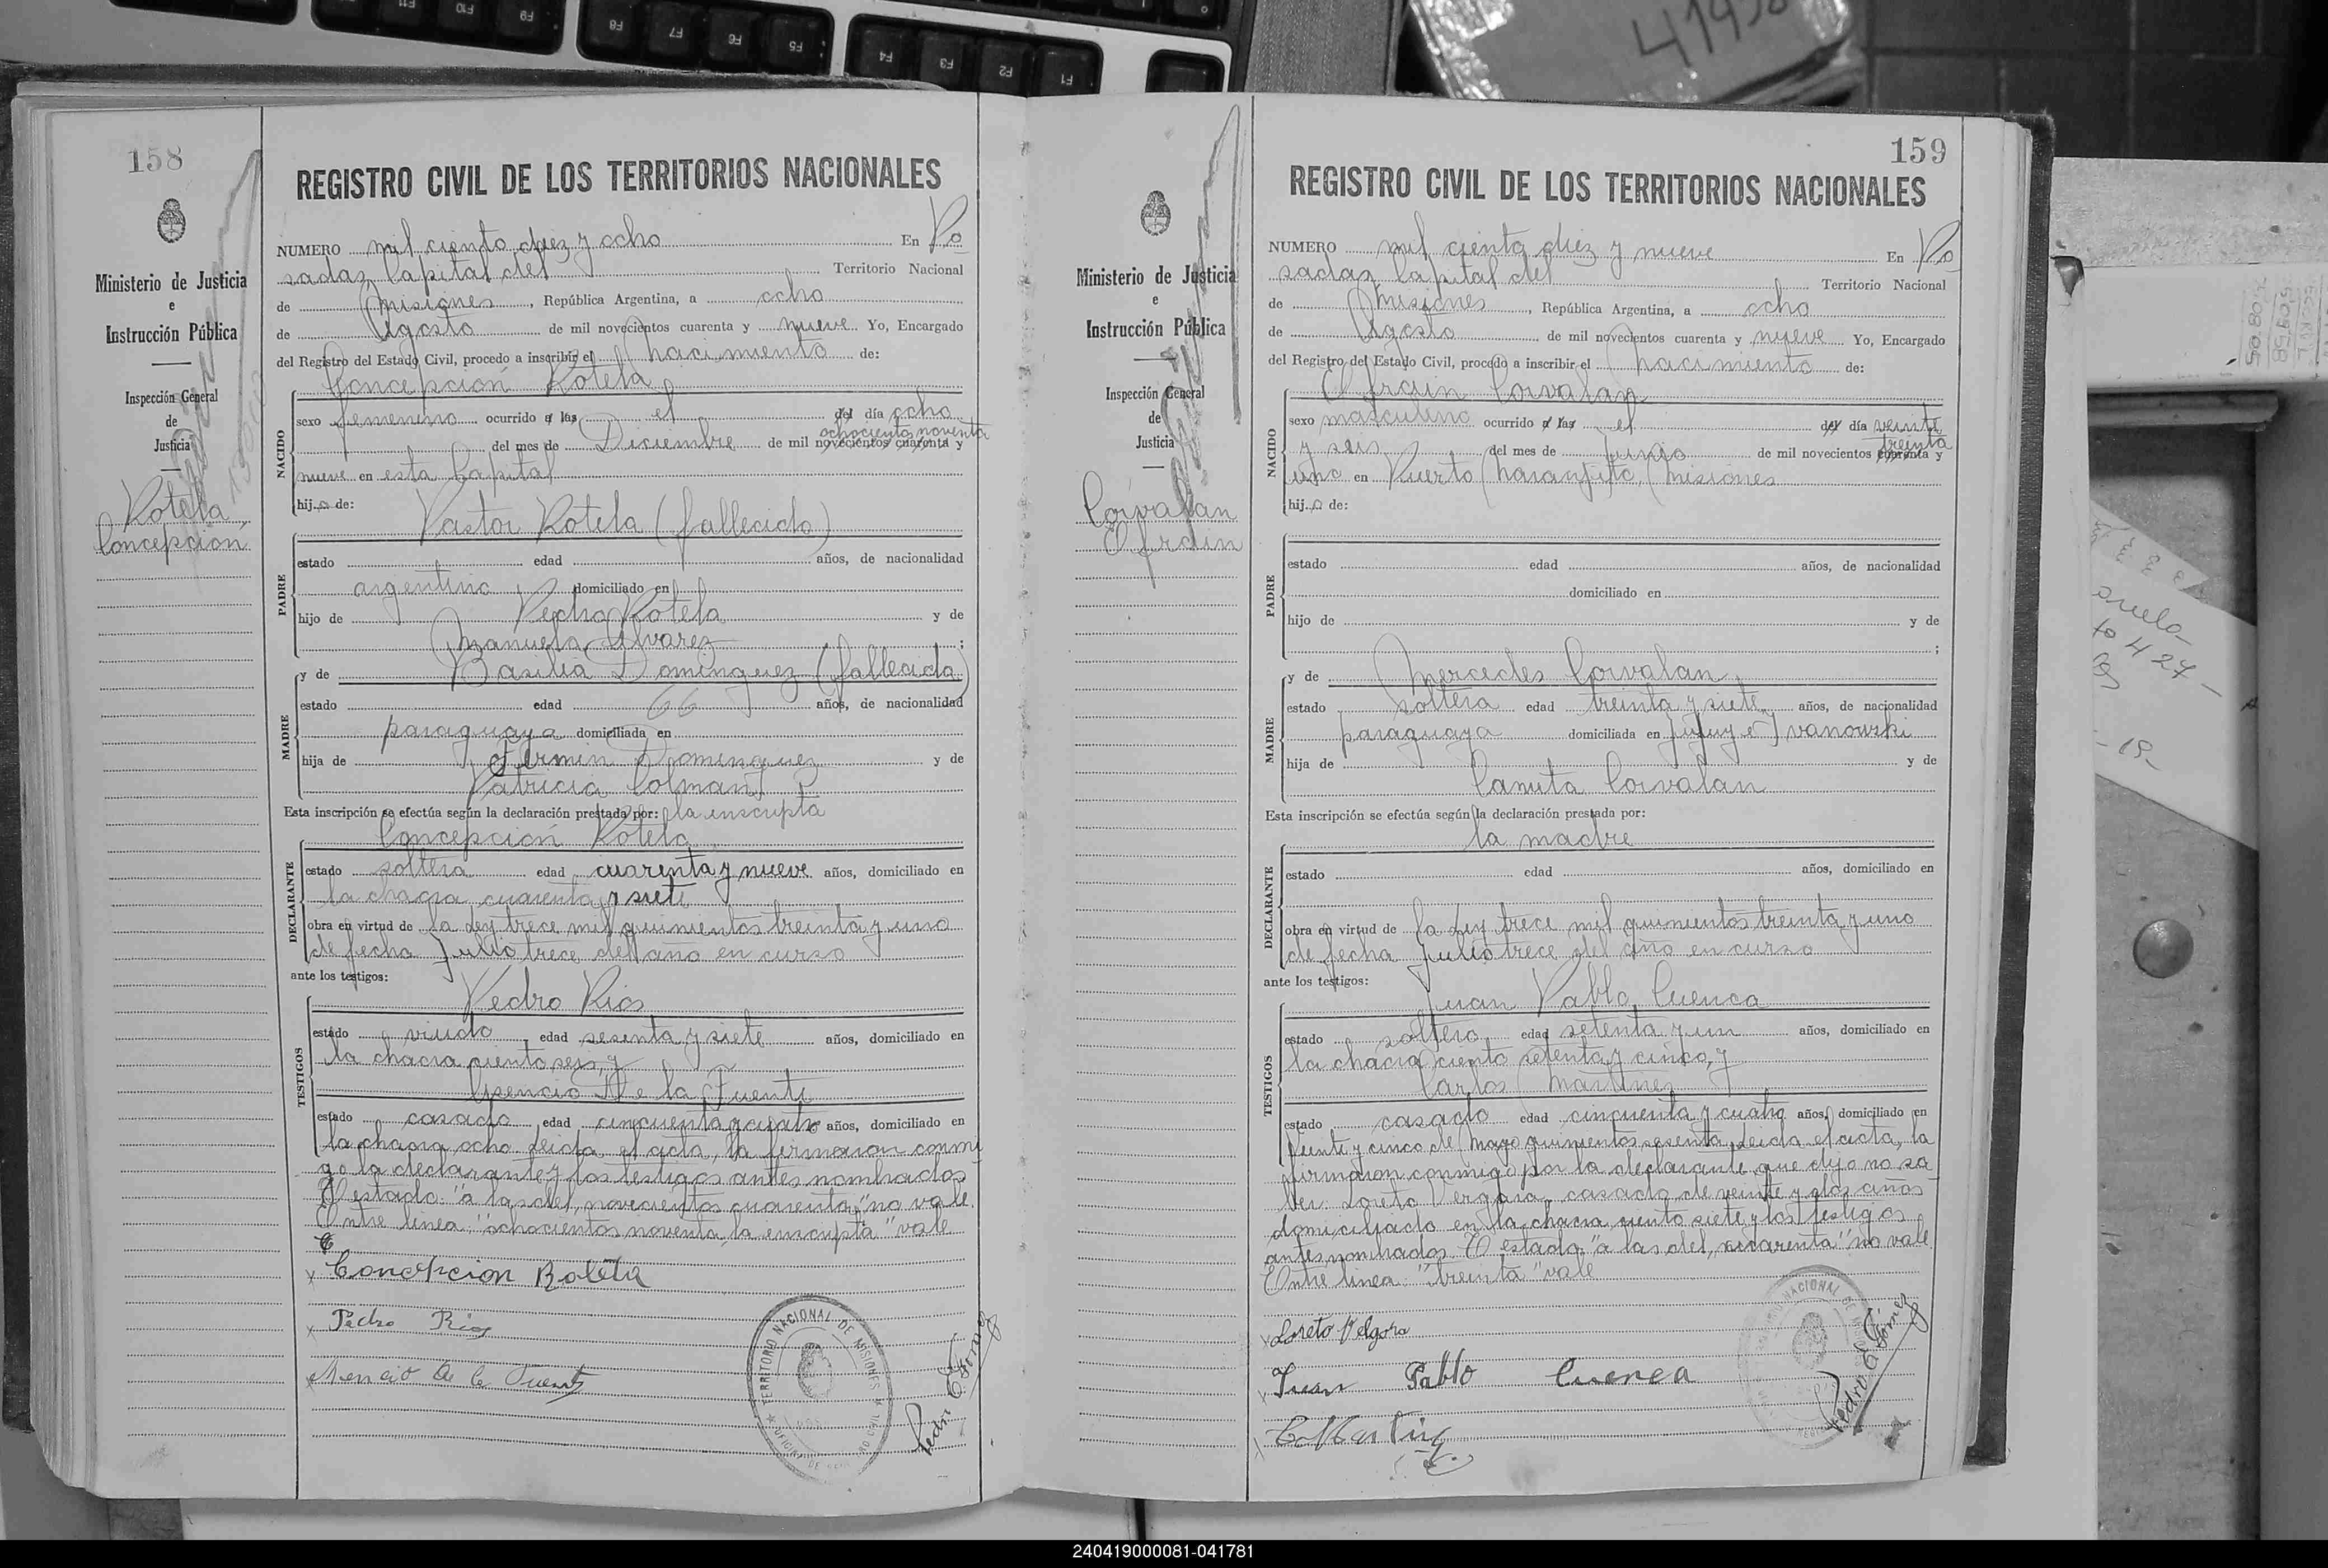 F11 F10 F9 F8 F7 F6 F5 F4 F3 F2 F1
158
REGISTRO CIVIL DE LOS TERRITORIOS NACIONALES
Ministerio de Justicia
e
Instrucción Pública
Inspección General
de
Justicia
Rotela
Concepción
NUMERO mil ciento diez y ocho En Po
sadas Capital del Territorio Nacional
de Misiones, República Argentina, a ocho
de Agosto de mil novecientos cuarenta y nueve Yo, Encargado
del Registro del Estado Civil, procedo a inscribir el nacimiento de:
Concepción Rotela
NACIDO
sexo femenino ocurrido a las el del día ocho
ochocientos noventa
del mes de Diciembre de mil novecientos cuarenta y
nueve en esta Capital
hija de:
Pastor Rotela (fallecido)
PADRE
estado edad años, de nacionalidad
argentino domiciliado en
hijo de Pedro Rotela y de
Manuela Alvarez ;
y de Basilia Dominguez (fallecida)
MADRE
estado edad 66 años, de nacionalidad
paraguaya domiciliada en
hija de Fermin Dominguez y de
Patricia Colman
Esta inscripción se efectúa según la declaración prestada por: la inscripta
Concepción Rotela
DECLARANTE
estado soltera edad cuarenta y nueve años, domiciliado en
la chacra cuarenta y siete
obra en virtud de la Ley trece mil quinientos treinta y uno
de fecha Julio trece del año en curso
ante los testigos:
Pedro Rios
TESTIGOS
estado viudo edad sesenta y siete años, domiciliado en
la chacra ciento seis, y
De la Fuente
estado casado edad cincuenta y cuatro años, domiciliado en
la chacra ocho. Leida el acta, la firmaron conmi
go la declarante y los testigos antes nombrados
E estado: "a las del, novecientos cuarenta," no vale.
Entre linea: "ochocientos noventa, la inscripta" vale
Concepcion Rotela
Pedro Rios
De la Fuente
TERRITORIO NACIONAL DE MISIONES
Pedro E Gomez
159
REGISTRO CIVIL DE LOS TERRITORIOS NACIONALES
Ministerio de Justicia
e
Instrucción Pública
Inspección General
de
Justicia
Corvalan
Efrain
NUMERO mil ciento diez y nueve En Po
sadas Capital del Territorio Nacional
de Misiones, República Argentina, a ocho
de Agosto de mil novecientos cuarenta y nueve Yo, Encargado
del Registro del Estado Civil, procedo a inscribir el nacimiento de:
Efrain Corvalan
NACIDO
sexo masculino ocurrido a las el del día veinte
treinta
y seis del mes de Junio de mil novecientos cuarenta y
uno en Puerto Naranjito, Misiones
hijo de:
PADRE
estado edad años, de nacionalidad
domiciliado en
hijo de y de
;
y de Mercedes Corvalan
MADRE
estado soltera edad treinta y siete años, de nacionalidad
paraguaya domiciliada en Jujuy e Ivanowski
hija de y de
Canuta Corvalan
Esta inscripción se efectúa según la declaración prestada por:
la madre
DECLARANTE
estado edad años, domiciliado en
obra en virtud de la Ley trece mil quinientos treinta y uno
de fecha Julio trece del año en curso
ante los testigos:
Juan Pablo Cuenca
TESTIGOS
estado soltero edad setenta y un años, domiciliado en
la chacra ciento setenta y cinco, y
Carlos Martinez
estado casado edad cincuenta y cuatro años, domiciliado en
Veinte y cinco de Mayo quinientos sesenta. Leida el acta, la
firmaron conmigo por la declarante que dijo no sa
ber: Loreto Vergara, casado de veinte y dos años
domiciliado en la chacra ciento siete y los testigos
antes nombrados. E estado "a las del, cuarenta" no vale
Entre linea: "treinta" vale
Loreto Vergara
Juan Pablo Cuenca
Pedro E Gomez
240419000081-041781